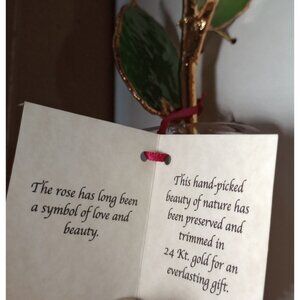 The rose has long been
a symbol of love and
beauty.
This hand-picked
beauty of nature has
been preserved and
trimmed in
24 Kt. gold for an
everlasting gift.